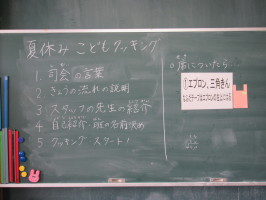 夏休み こどもクッキング
1. 司会の言葉
2 きょうの流れの説明
3 スタッフの先生の紹介
4 自己紹介・班の名前決め
5 クッキング スタート!
○席についたら
①エプロン、三角きん